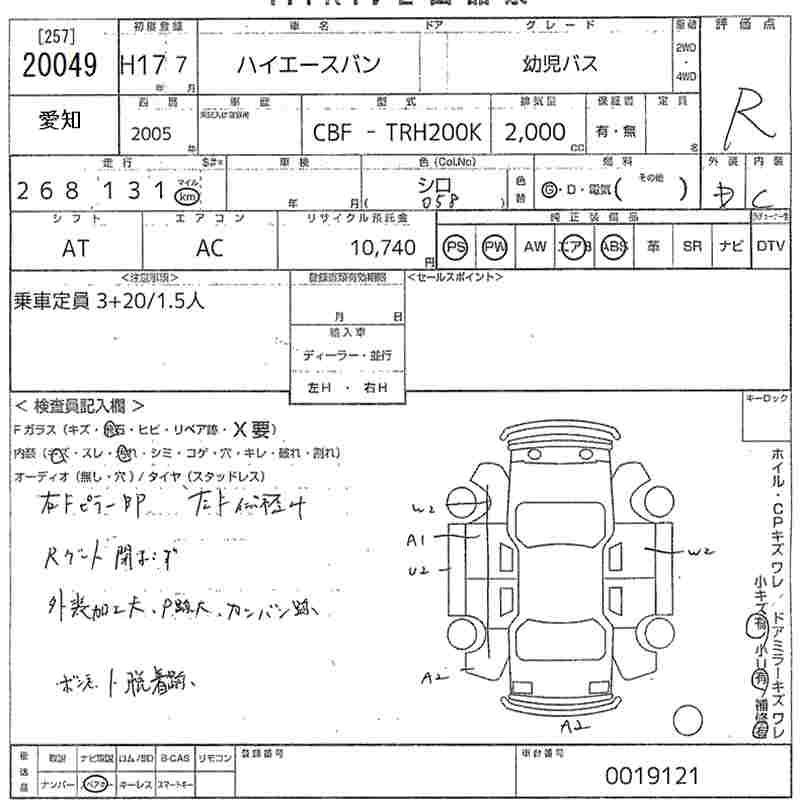 [257]
20049
初度登録
H17 7
年 月
車名 ドア グレード
ハイエースバン 幼児バス
駆動
2WD
・
4WD
評価点
R
愛知
2005
年
車歴
型式
CBF - TRH200K
排気量
2,000
cc
保証書
有・無
定員
名
走行
268 131
マイル
km
車検
年 月
色(Col.No)
シロ
058
色替
燃料
G・D・電気( その他 )
外装 内装
D C
シフト
AT
エアコン
AC
リサイクル預託金
10,740
円
純正装備品
PS PW AW エアB ABS 革 SR ナビ DTV
<注意事項>
乗車定員 3+20/1.5人
月 日
輸入車
ディーラー・並行
左H ・ 右H
<セールスポイント>
< 検査員記入欄 >
Fガラス (キズ・飛石・ヒビ・リペア跡・X要)
内装 (キズ・スレ・汚れ・シミ・コゲ・穴・キレ・破れ・割れ)
オーディオ (無し・穴) / タイヤ (スタッドレス)
右Fピラー凹P
Rゲート閉おず
外装加工大、P跡大、カンバン跡、
ボンネット脱着跡、
W2
A1
U2
W2
A2
A2
キーロック
ホイル・CPキズ ワレ / ドアミラーキズ ワレ
小キズ有 / 小U有 / 補修有
取説 ナビ取説 ロム/SD B-CAS リモコン
ナンバー スペアキー キーレス スマートキー
登録番号
車台番号
0019121